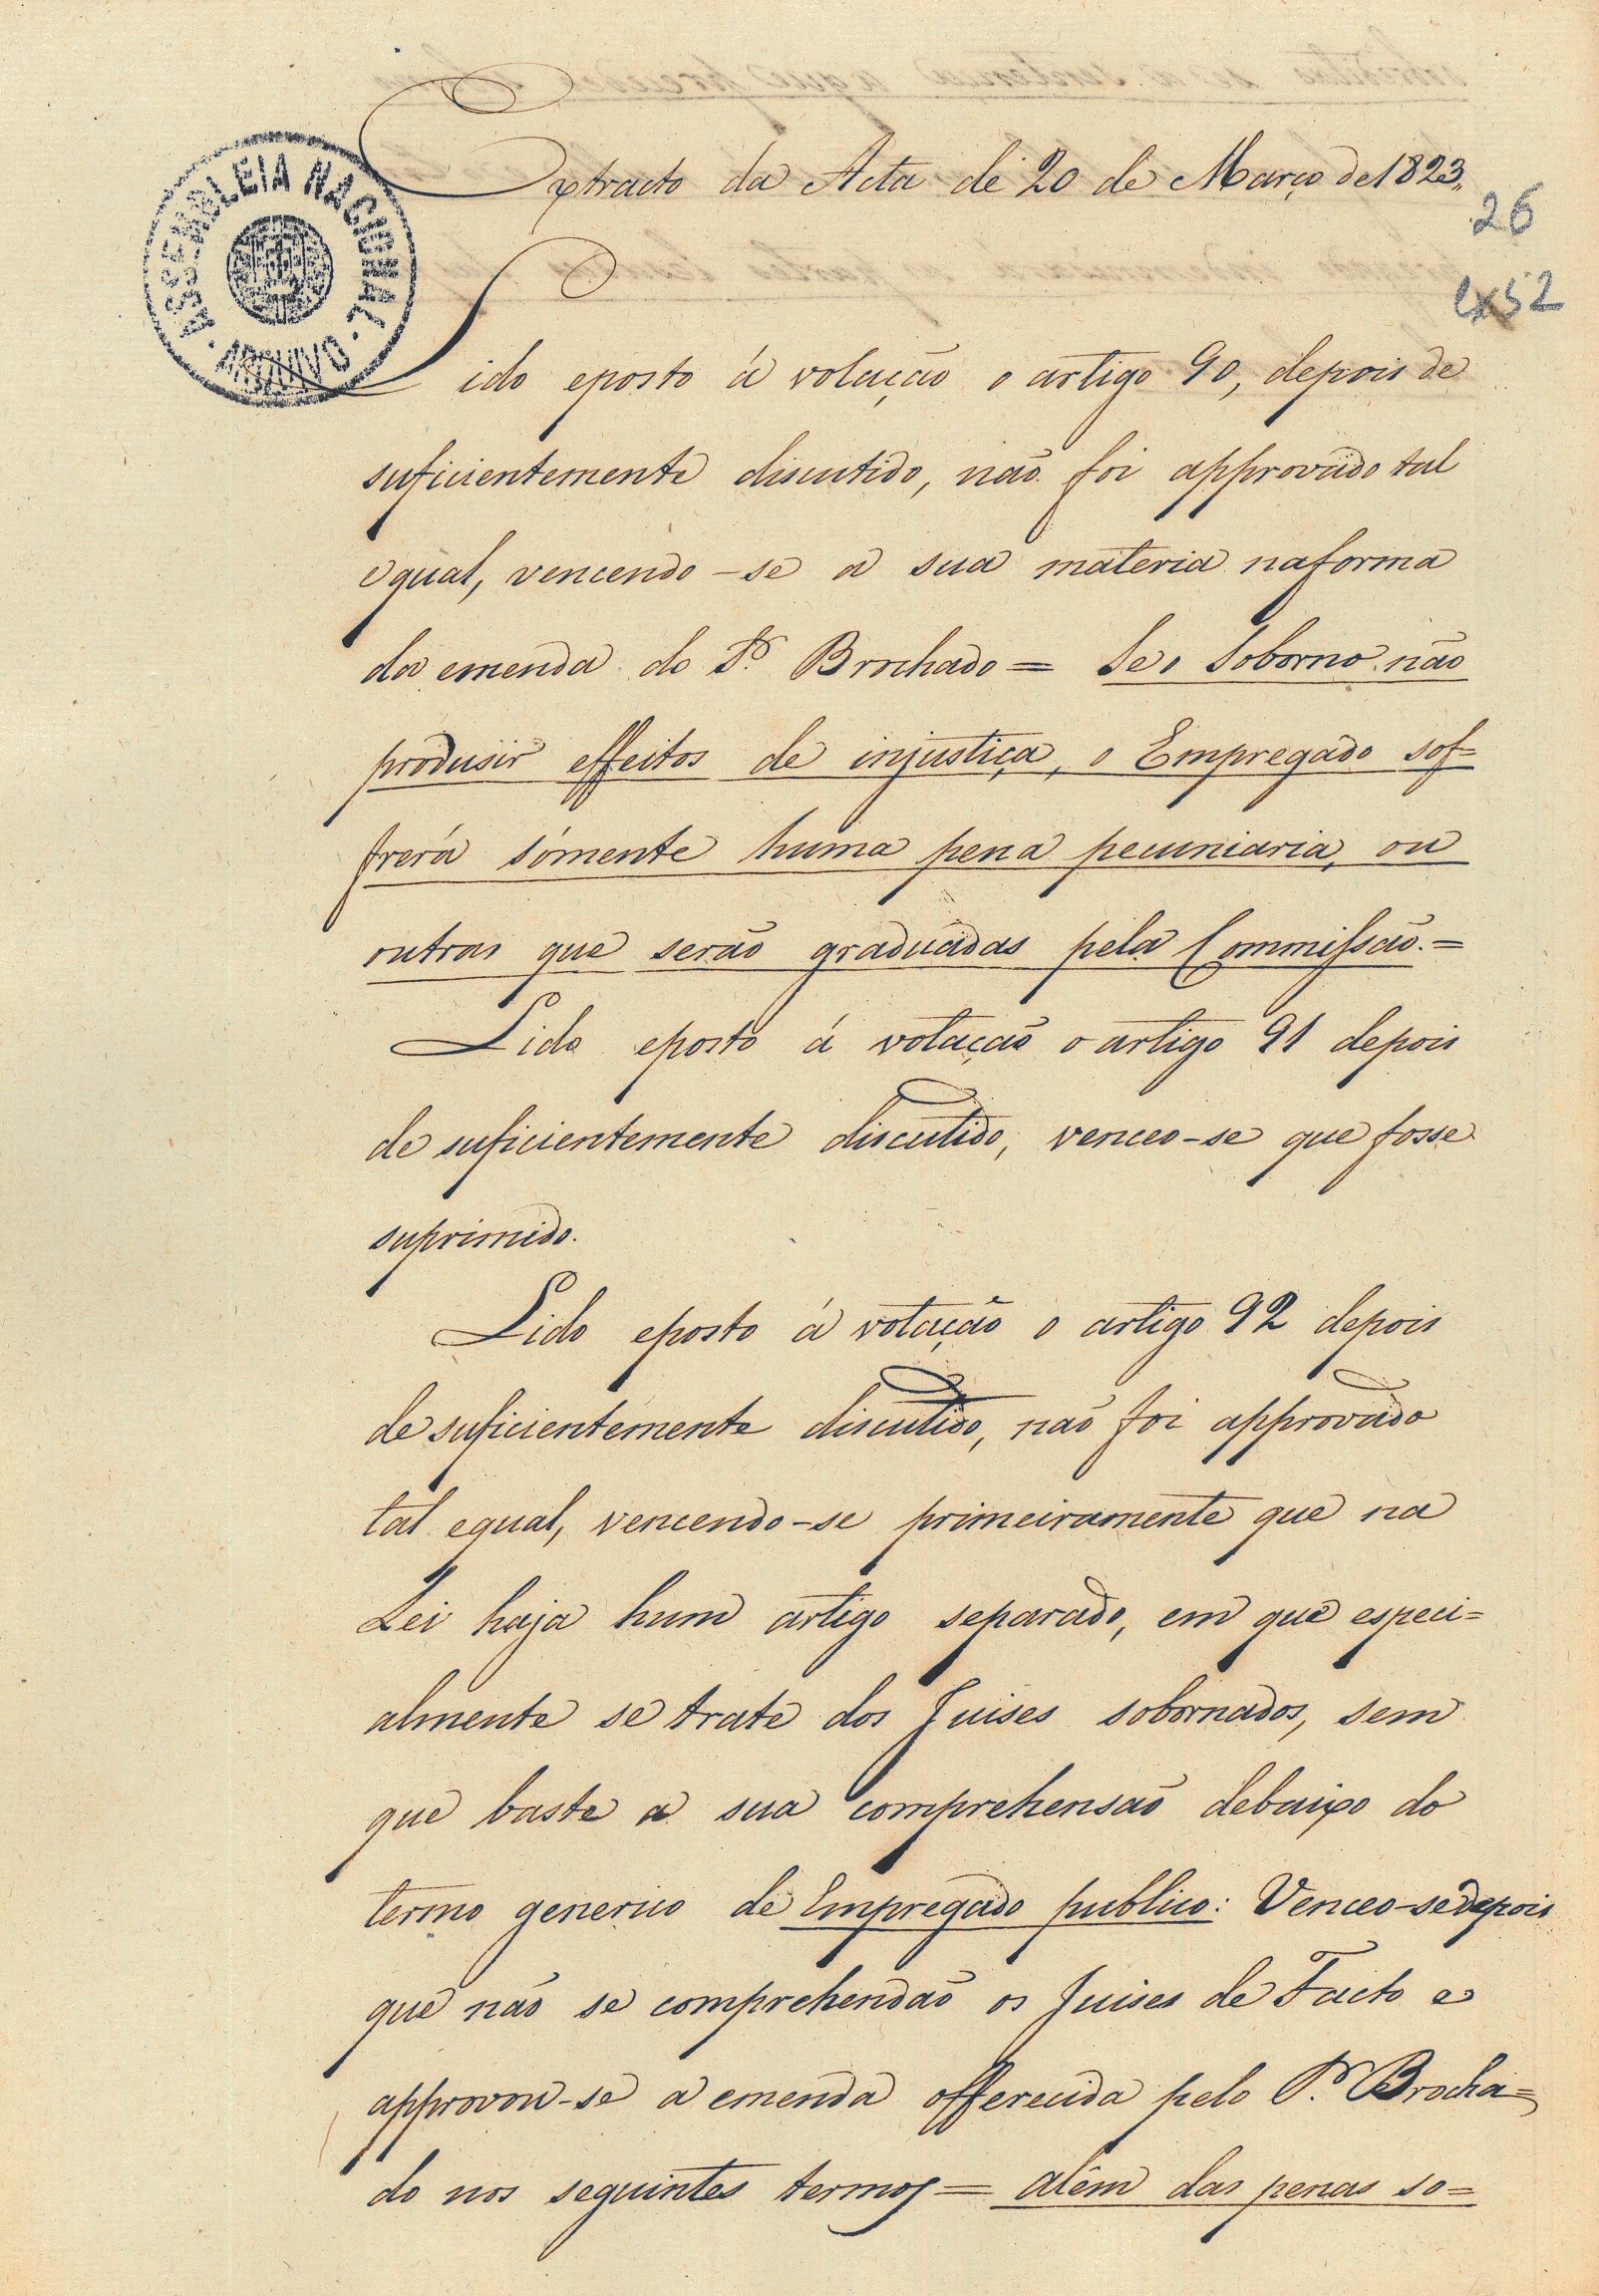 Extracto da Acta de 20 de Março de 1823.
ASSEMBLEIA NACIONAL · ARQUIVO ·
26
cx52
Lido eposto á votação o artigo 90, depois de
suficientemente discutido, não foi approvado tal
equal, vencendo-se a sua materia naforma
da emenda do Sr. Brochado = Se o soborno não
produsir effeitos de injustiça, o Empregado sof=
frerá sómente huma pena pecuniaria, ou
outras que serão graduadas pela Commissão. =
Lido eposto á votação o artigo 91 depois
de suficientemente discutido, venceo-se que fosse
suprimido.
Lido eposto á votação o artigo 92 depois
de suficientemente discutido, não foi approvado
tal equal, vencendo-se primeiramente que na
Lei haja hum artigo separado, em que especi=
almente se trate dos Juises sobornados, sem
que baste a sua comprehensão debaixo do
termo generico de Empregado publico: Venceo-se depois
que não se comprehendão os Juises de Facto e
approvou-se a emenda offerecida pelo Sr. Brocha=
do nos seguintes termos = alêm das penas so=